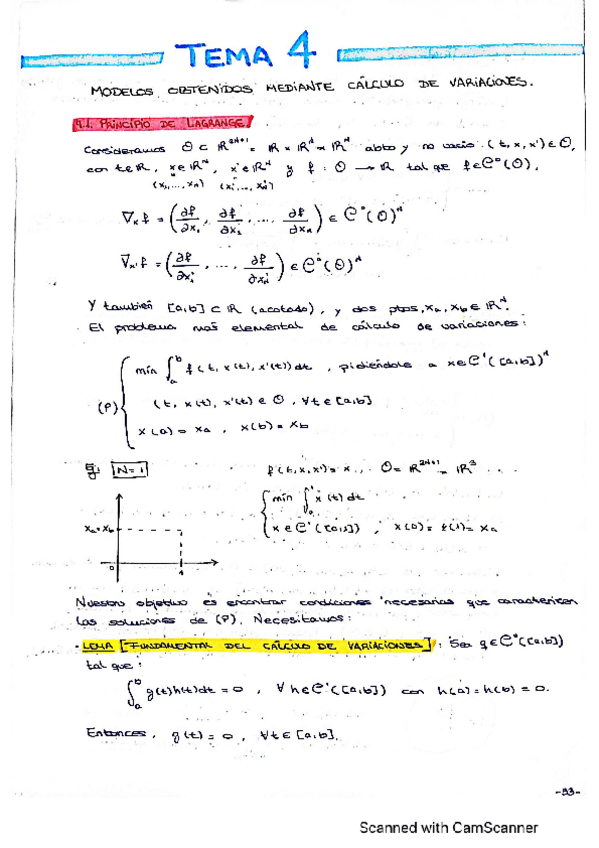 TEMA 4
MODELOS OBTENIDOS MEDIANTE CÁLCULO DE VARIACIONES.
4.1. PRINCIPIO DE LAGRANGE
Consideramos Θ ⊂ ℝ^{2N+1} = ℝ × ℝ^N × ℝ^N abto y no vacío. (t, x, x') ∈ Θ,
con t ∈ ℝ, x ∈ ℝ^N, x' ∈ ℝ^N y f : Θ → ℝ tal que f ∈ C^0(Θ),
(x_1, ..., x_N) (x'_1, ..., x'_N)
∇_x f = (∂f/∂x_1, ∂f/∂x_2, ..., ∂f/∂x_N) ∈ C^0(Θ)^N
∇_{x'} f = (∂f/∂x'_1, ..., ∂f/∂x'_N) ∈ C^0(Θ)^N
Y también [a,b] ⊂ ℝ (acotado), y dos ptos, x_a, x_b ∈ ℝ^N.
El problema más elemental de cálculo de variaciones:
(P) { min ∫_a^b f(t, x(t), x'(t)) dt , pidiéndole a x ∈ C^1([a,b])^N
(t, x(t), x'(t)) ∈ Θ, ∀t ∈ [a,b]
x(a) = x_a , x(b) = x_b
Ej: N=1 f(t,x,x') = x ... Θ = ℝ^{2N+1} = ℝ^3 ...
{ min ∫_0^1 x(t) dt
x_a = x_b
x ∈ C^1([0,1]) , x(0) = x(1) = x_a
0 1
Nuestro objetivo es encontrar condiciones necesarias que caractericen
las soluciones de (P). Necesitamos:
· LEMA [FUNDAMENTAL DEL CÁLCULO DE VARIACIONES] : Sea g ∈ C^0([a,b])
tal que:
∫_a^b g(t)h(t)dt = 0 , ∀ h ∈ C^1([a,b]) con h(a) = h(b) = 0.
Entonces, g(t) = 0, ∀t ∈ [a,b].
-53-
Scanned with CamScanner